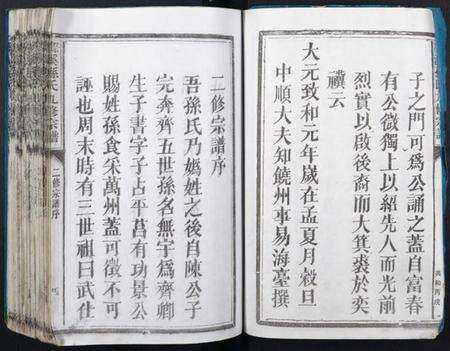 子之門可爲公誦之蓋自富春
有公微獨上以紹先人而光前
烈實以啟後裔而大箕裘於奕
禩云
大元致和元年歲在孟夏月穀旦
中順大夫知饒州事易海臺撰
二修宗譜序
吾孫氏乃媯姓之後自陳公子
完奔齊五世孫名無宇爲齊卿
生子書字子占平莒有功景公
賜姓孫食采萬州蓋可徵不可
誣也周末時有三世祖曰武仕
二修宗譜序